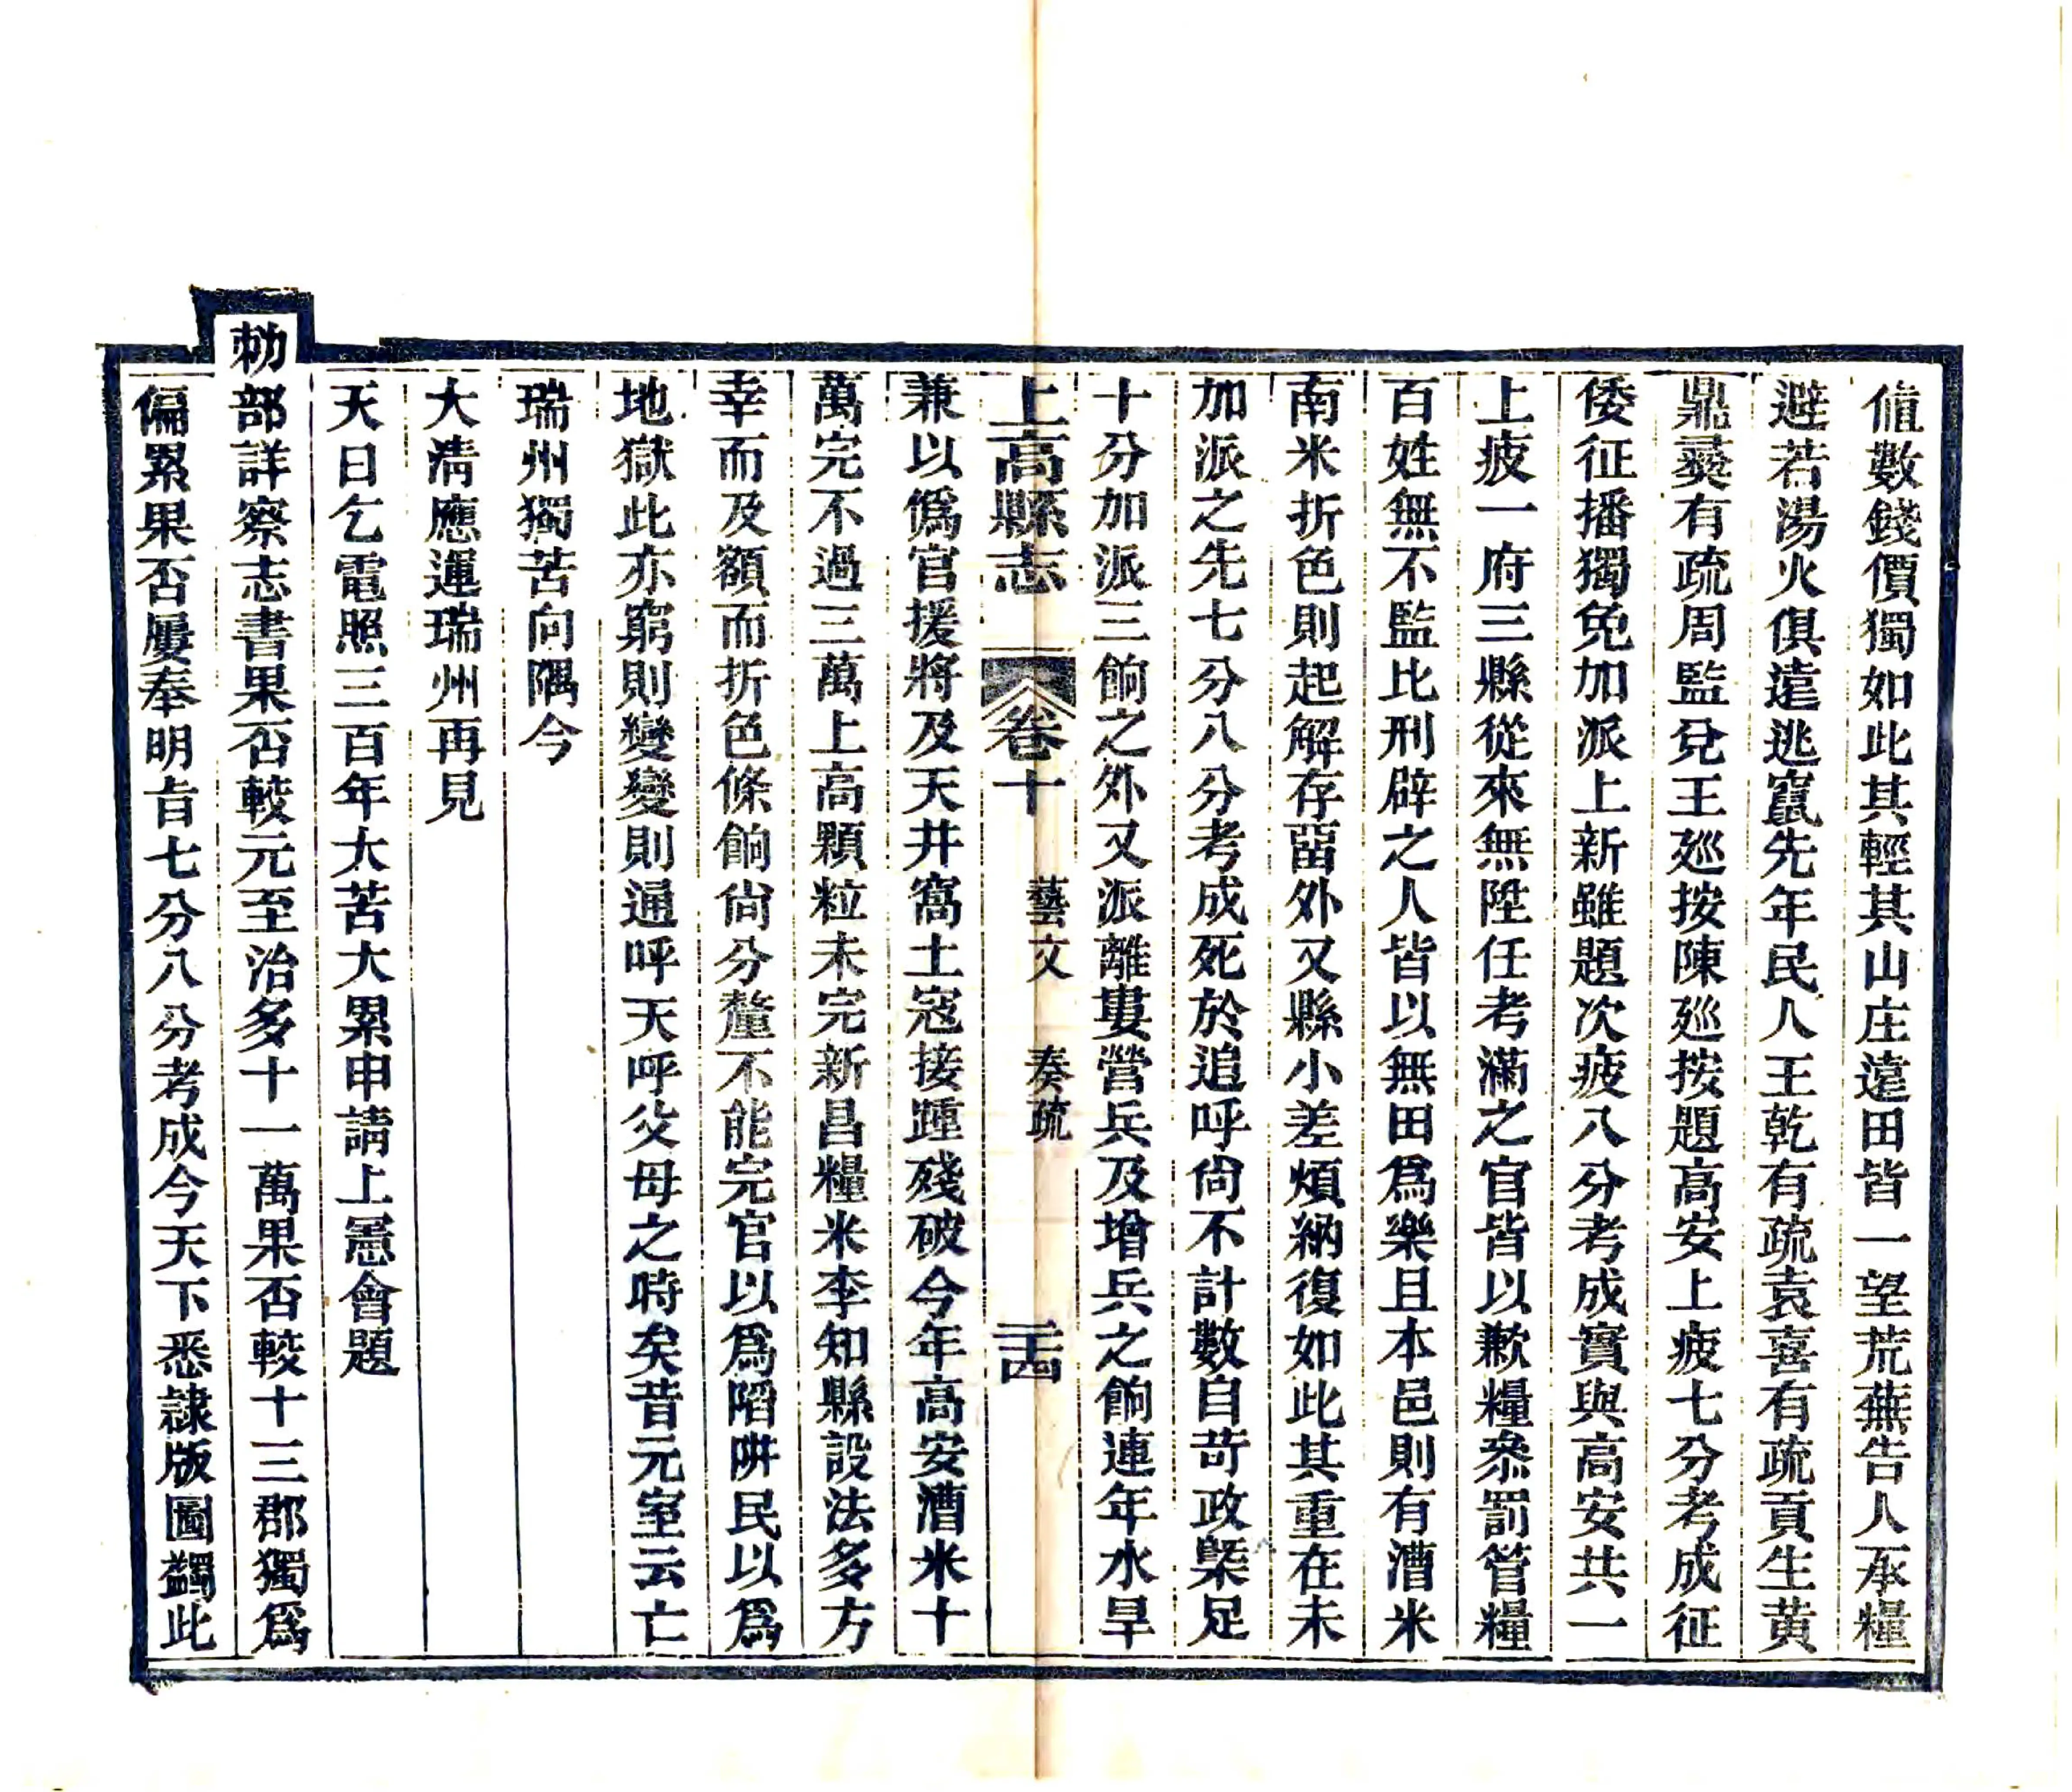 値數錢價獨如此其輕其山庄遠田皆一望荒蕪告人承糧
避若湯火俱遠逃竄先年民人王乾有疏袁喜有疏貢生黄
鼎彛有疏周監兌王廵按陳廵按題高安上疲七分考成征
倭征播獨免加派上新雖題次疲八分考成實與高安共一
上疲一府三縣從來無陞任考滿之官皆以歉糧叅罰管糧
百姓無不監比刑辟之人皆以無田爲樂且本邑則有漕米
南米折色則起解存畱外又縣小差煩納復如此其重在未
加派之先七分八分考成死於追呼尙不計數自苛政槩足
十分加派三餉之外又派離婁營兵及增兵之餉連年水旱
上高縣志 卷十 藝文 奏疏 二十四
兼以僞官援將及天井窩土寇接踵殘破今年高安漕米十
萬完不過三萬上高顆粒未完新昌糧米李知縣設法多方
幸而及額而折色條餉尙分釐不能完官以爲陷阱民以爲
地獄此亦窮則變變則通呼天呼父母之時矣昔元室云亡
瑞州獨苦向隅今
大淸應運瑞州再見
天日乞電照三百年太苦大累申請上憲會題
勑部詳察志書果否較元至治多十一萬果否較十三郡獨爲
偏累果否屢奉明旨七分八分考成今天下悉隷版圖蠲此